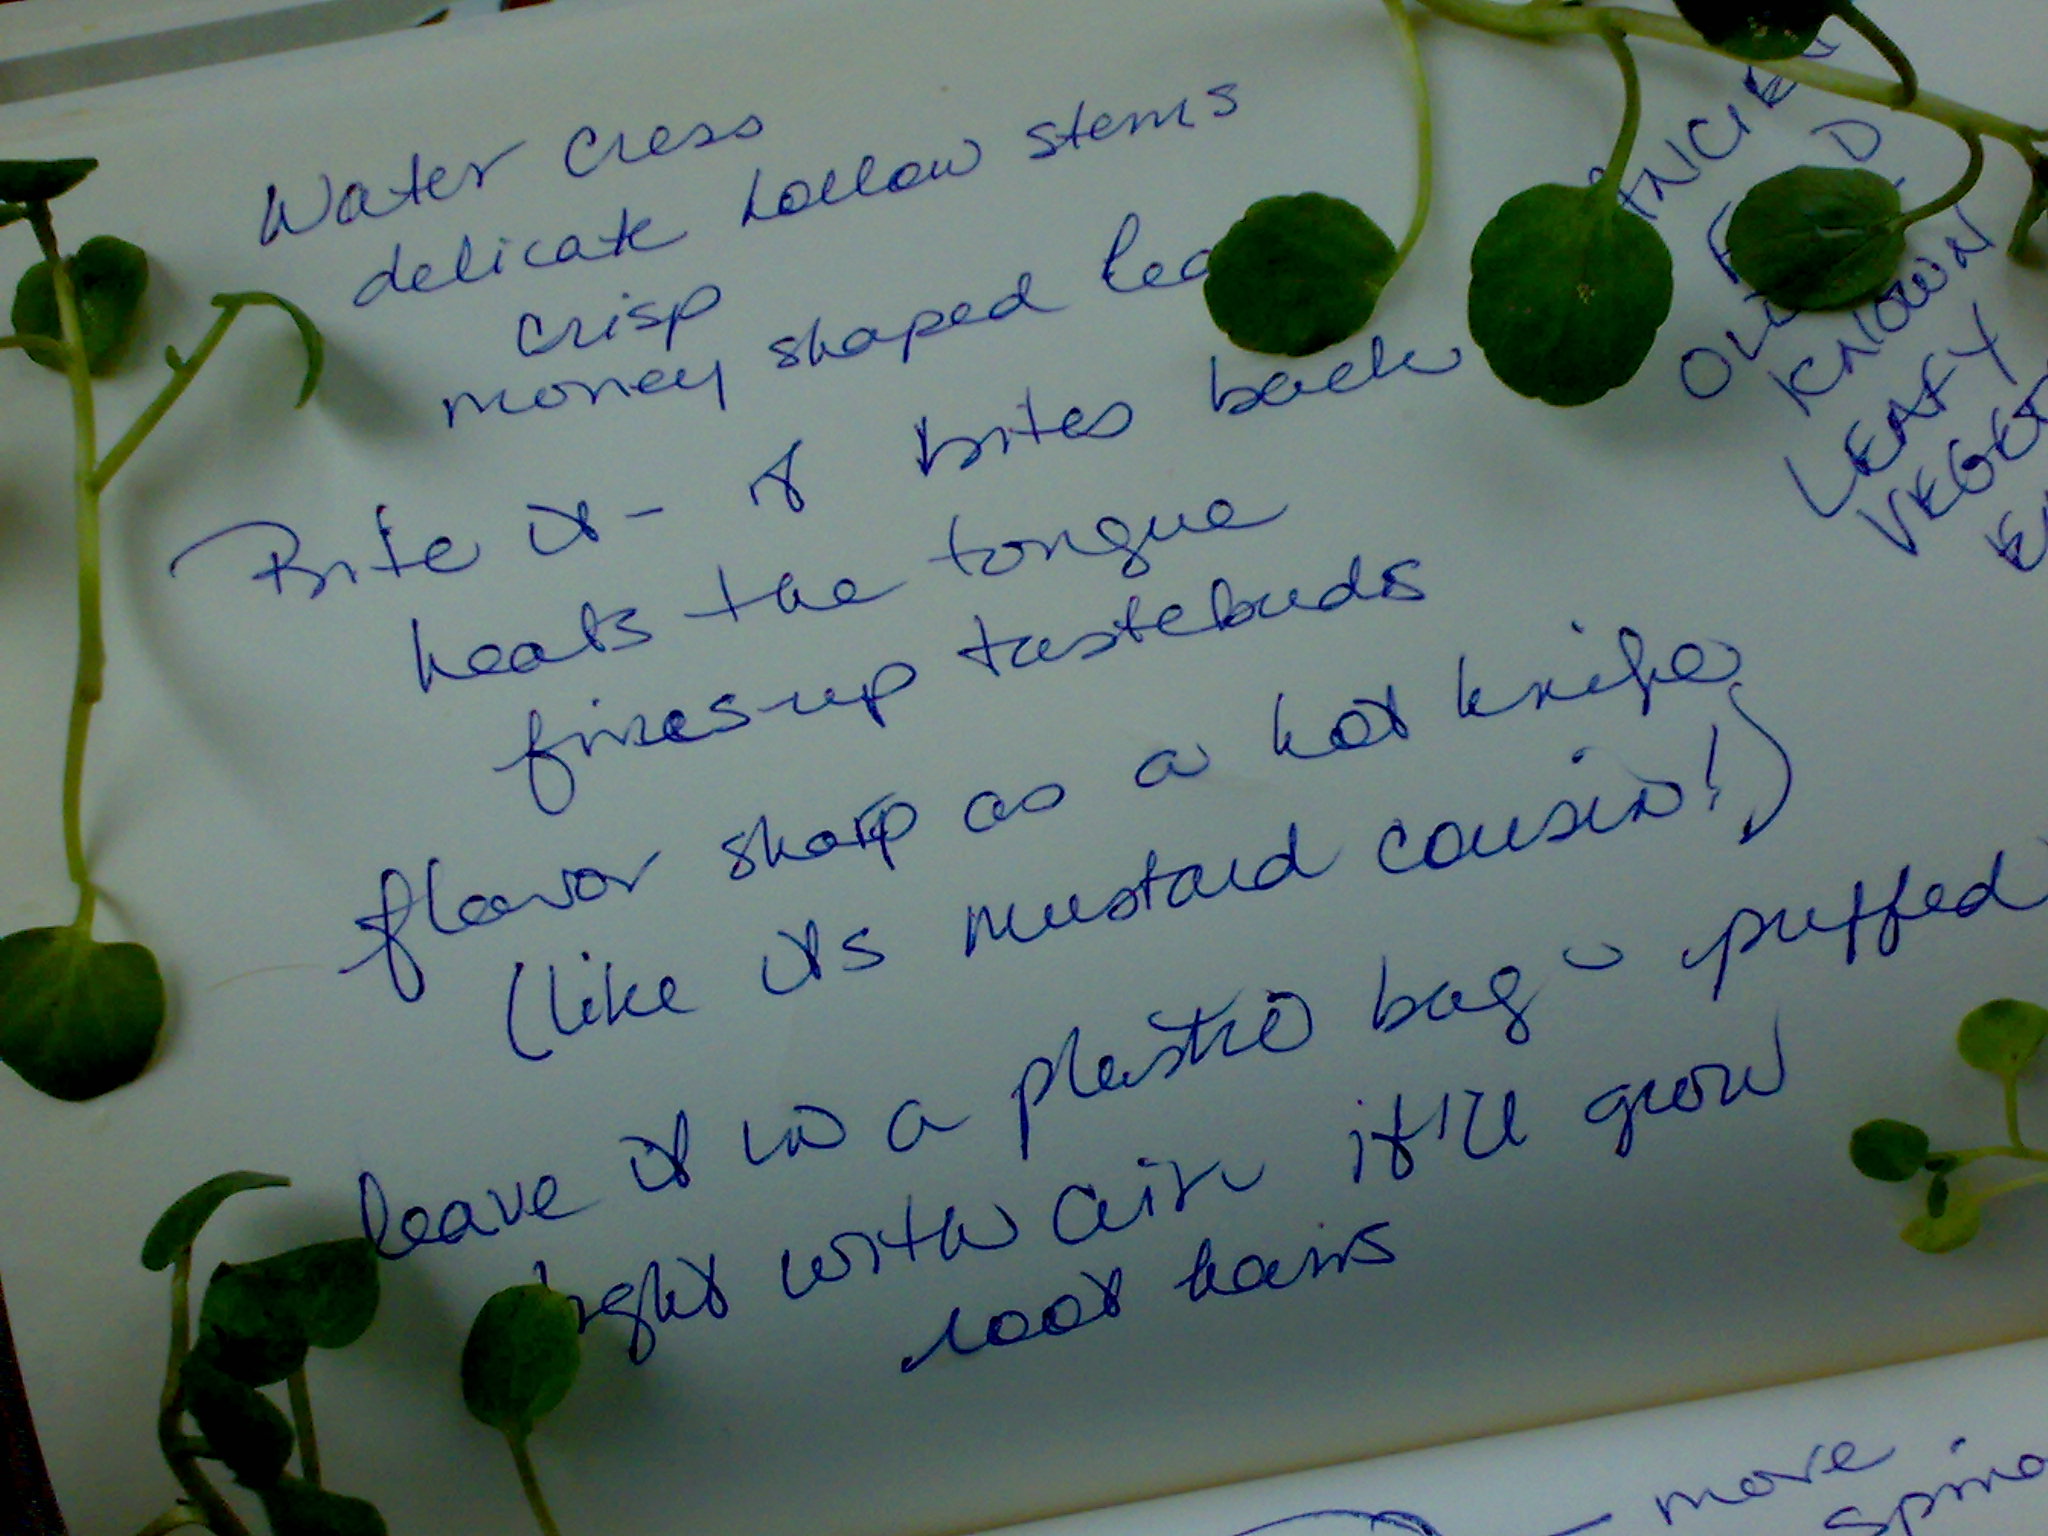 Water Cress
delicate hollow stems
crisp
money shaped lea
Bite it - it bites back
heats the tongue
fires-up tastebuds
flavor sharp as a hot knife
(like its mustard cousin!)
leave it in a plastic bag - puffed
tight with air it'll grow
root hairs
ANCIEN
OL
KNOWN
LEAFY
VEGET
- more
spina